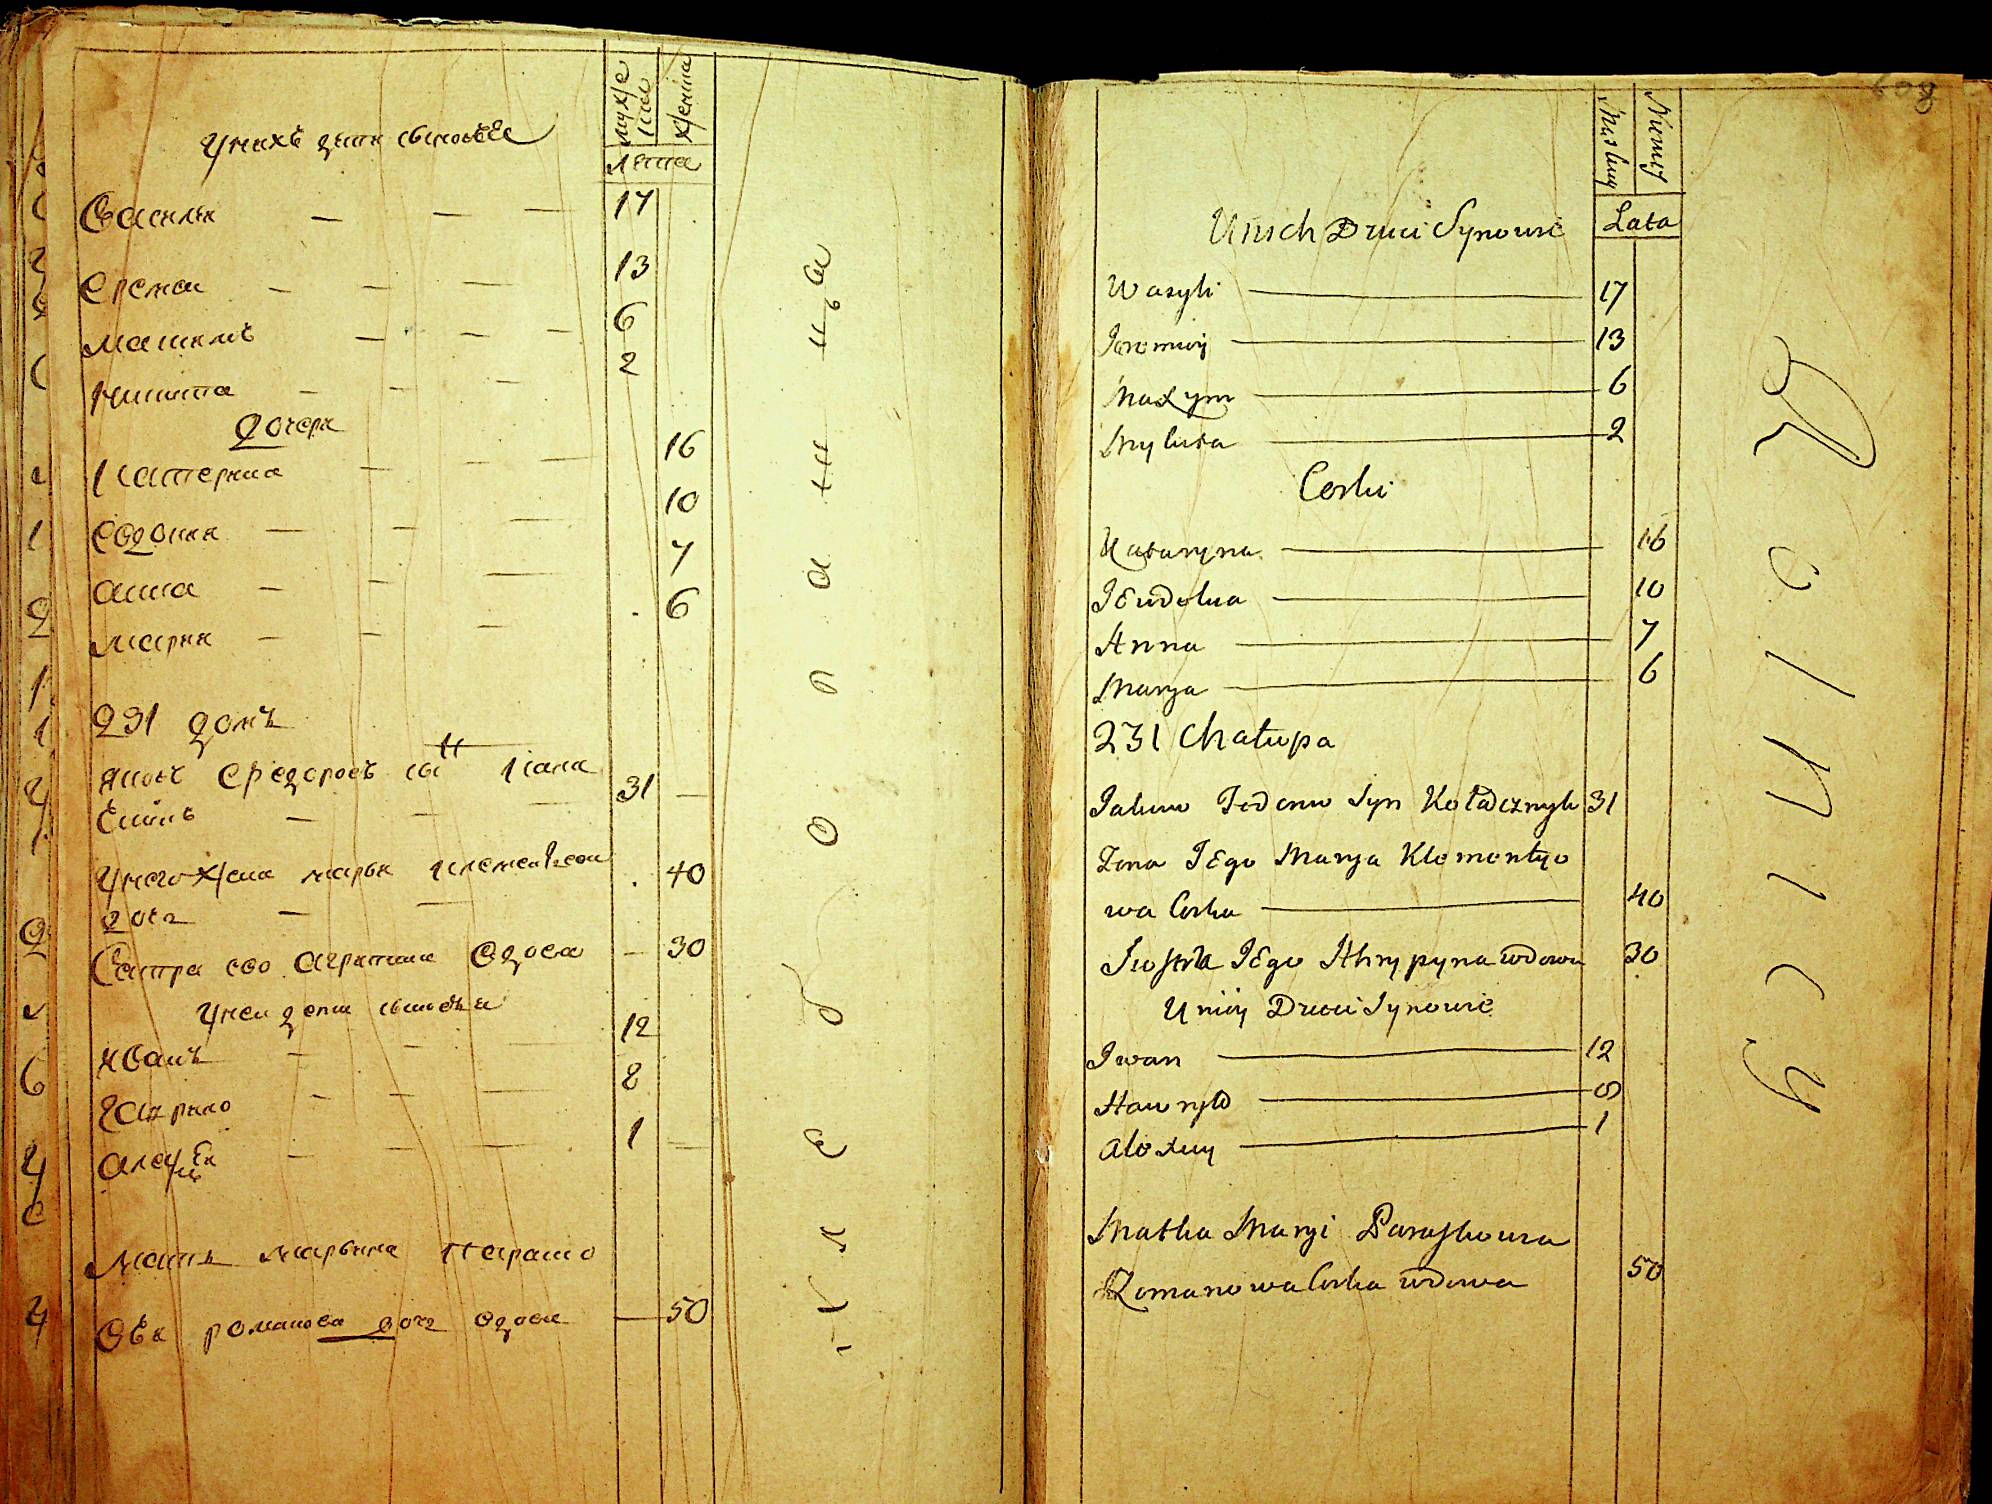 У нихъ дети сыновѣя
мужеска
женска
лета
Василеи 17
Еремеи 13
Максимъ 6
Никита 2
дочери
Катерина 16
Евдокия 10
Анна 7
Мария 6
231 домъ
Яковъ Федоровъ сын 31
У него жена Марья 40
дочь
Сестра его Агрипина вдова 30
У неи дети сыновѣя
Иванъ 12
Гаврило 8
Алексѣи 1
Мать Марьина Парашко
ѡва Романова дочь вдова 50
608
Męskiey
Niewiey
Lata
U nich Dzieci Synowie
Wasyli 17
Jeremiy 13
Maxym 6
Mykita 2
Corki
Kataryna 16
JEwdokia 10
Anna 7
Marya 6
231 Chałupa
Jakow Fedorow Syn Koładcznyk 31
Zona JEgo Marya Klementyo
wa Corka 40
Siostra JEgo Ahrypyna wdowa 30
U niey Dzieci Synowie
Iwan 12
Hawryło 8
Alexiey 1
Matka Maryi Paraskowia
Romanowa Corka wdowa 50
Rolnicy